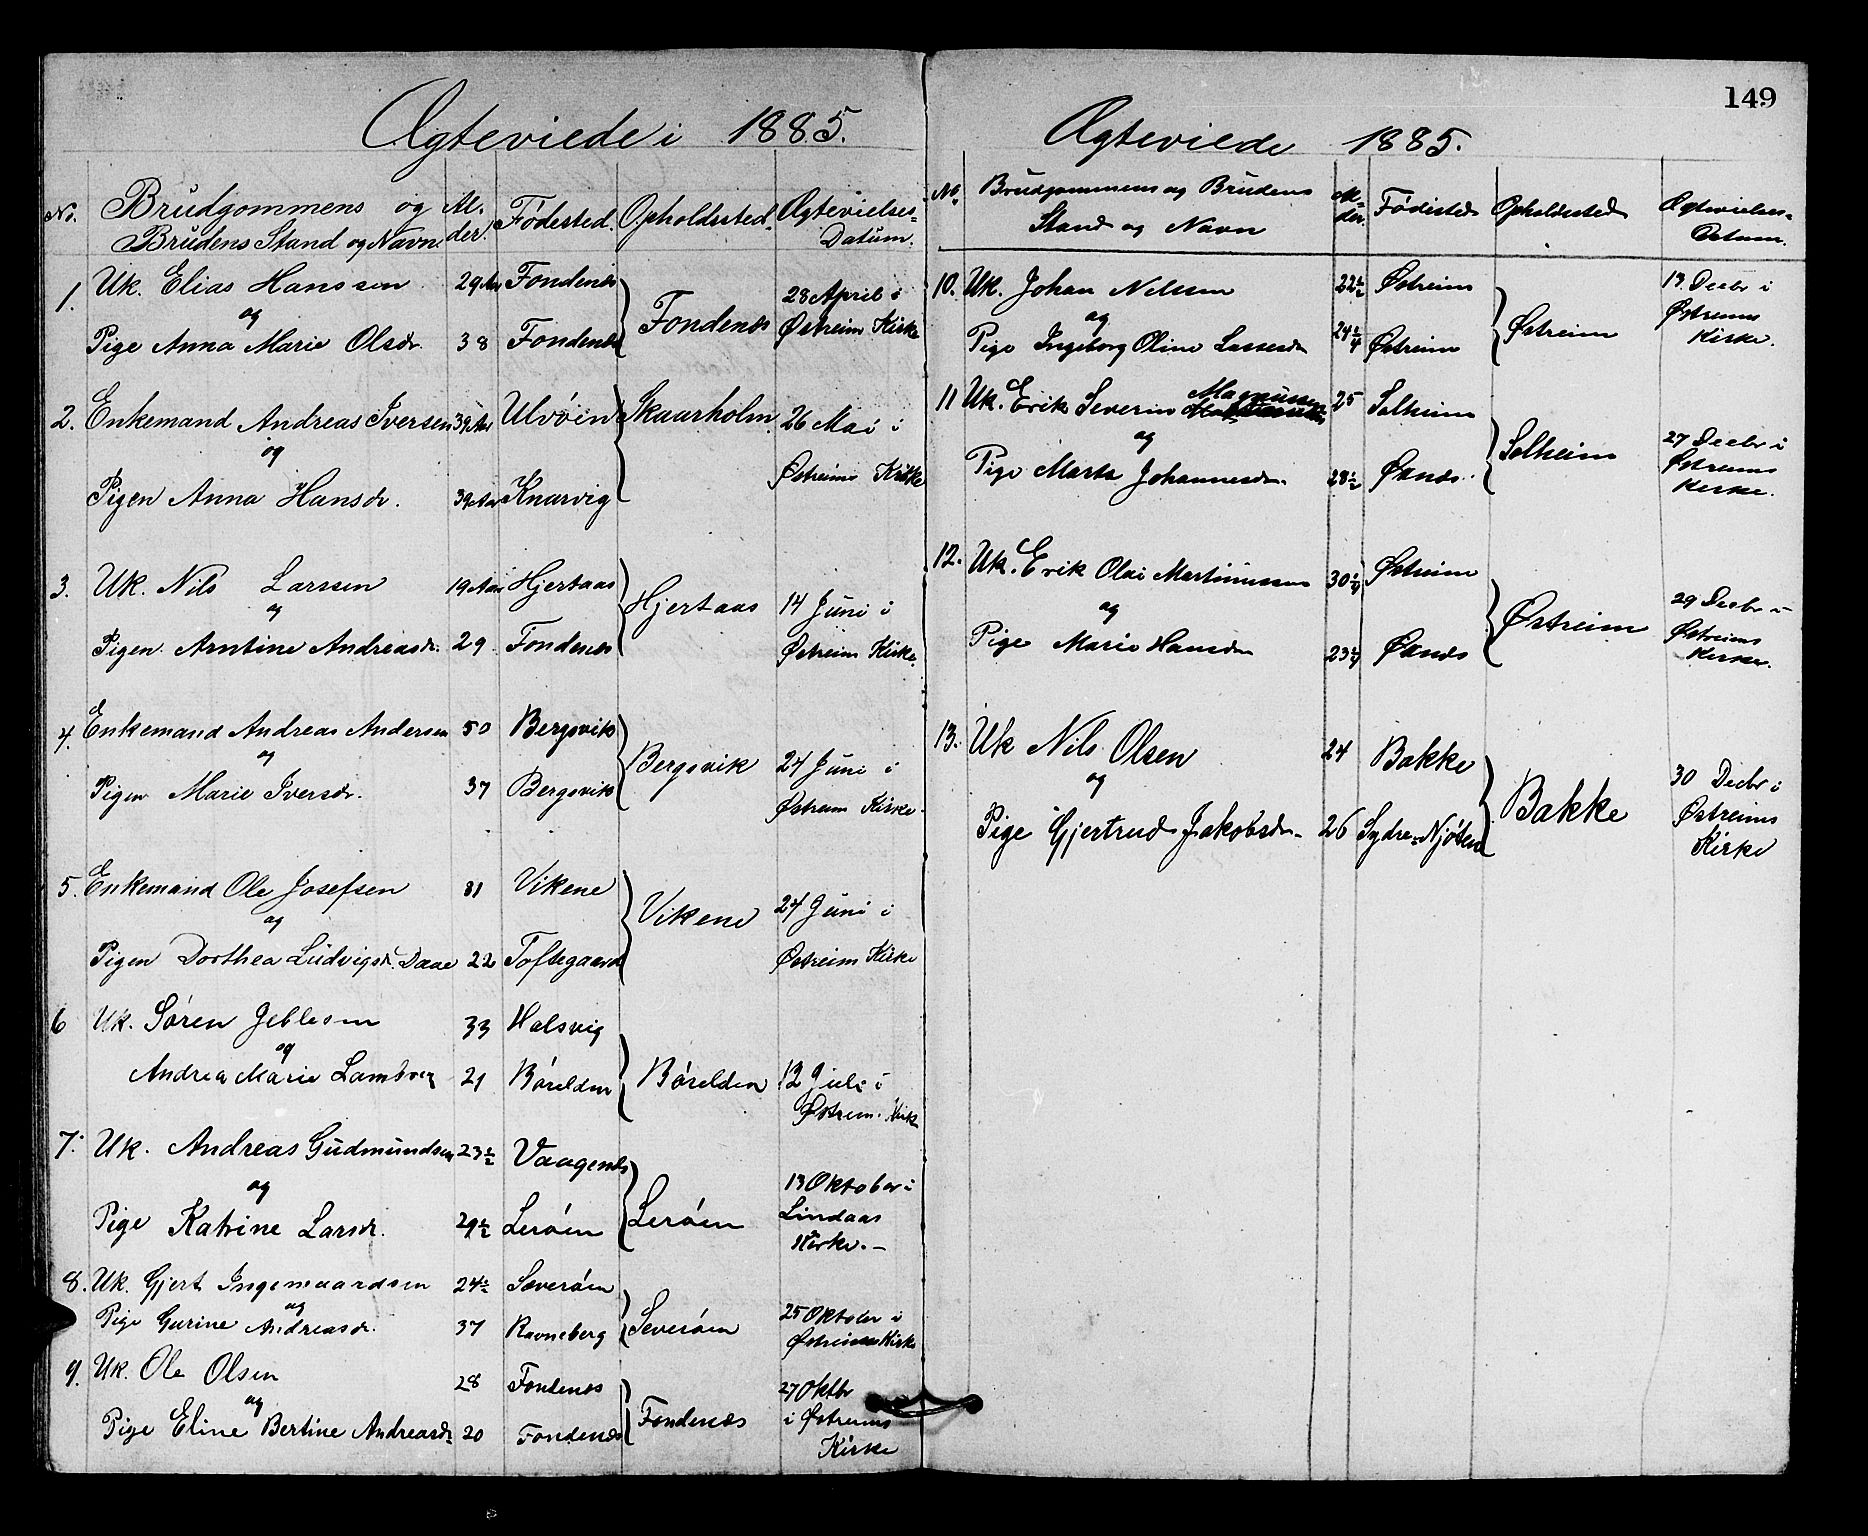 149
Ægteviede i 1885.
No. Brudgommens og Brudens Stand og Navn Alder. Fødested. Opholdssted. Ægtevielses-Datum.
1. Uk. Elias Hanssen 29 Aar Fondenæs Fondenæs 28 April i
og Østreim Kirke
Pige Anna Marie Olsdr. 38 Fondenæs
2. Enkemand Andreas Iversen 39 Aar Ulvøen Skaarholm 26 Mai i
og Østreims Kirke
Pigen Anna Hansdr. 39 Aar Knarvig
3. Uk. Nils Larssen 19 Aar Hjertaas Hjertaas 14 Juni i
og Østreim Kirke.
Pigen Arntine Andreasdr. 29. Fondenæs
4. Enkemand Andreas Andersen 50 Bergsvik Bergsvik 24 Juni i
og Østreim Kirke.
Pigen Marie Iversdr. 37 Bergsvik
5. Enkemand Ole Josefsen 81 Vikene Vikene 24 Juni i
og Østreim Kirke
Pigen Dorthea Ludvigsdr. Daae 22 Toftegaard
6 Uk. Søren Jeblesen 33 Halsvig
og Børelden 12 Juli i
Andrea Marie 21 Børelden Østreim. Kirke
7. Uk. Andreas Gudmundsen 23½ Vaagenæs
og Lerøen 13 Oktober i
Pige Katrine Larsdr. 29½ Lerøen Lindaas
Kirke.-
8. Uk. Gjert Ingemaardsen 24½ Sæverøen
og Severøen 25 Oktober i
Pige Gurine Andreasdr. 37 Ravneberg Østreims Kirke
9. Uk. Ole Olsen 28 Fondenæs Fondenæs 27 Oktbr
og i Østreims
Pige Eline Bertine Andreasdr 20 Fondenæs Kirke
Ægteviede 1885.
No. Brudgommens og Brudens Stand og Navn Alder. Fødested Opholdssted Ægtevielses-Datum.
10. Uk. Johan Nilssen 22½ Østreim Østreim 13 Decbr i
og Østreims
Pige Ingeborg Oline Lassesdr 24¼ Østreim Kirke.
11 Uk. Erik Severin Magnussen 25 Solheim Solheim 27 Decbr i
og Østreims
Pige Marta Johannesdr. 28½ Øxnæs. Kirke.
12. Uk. Erik Olai Martinussen 30¼ Østreim Østreim 29 Decbr i
og Østreims
Pige Marie Hansdr 23¼ Øxnæs Kirke.
13. Uk Nils Olsen 24 Bakke Bakke 30 Decbr i
og Østreims
Pige Gjertrud Jakobsdr. 26 Sydre-Njøten Kirke